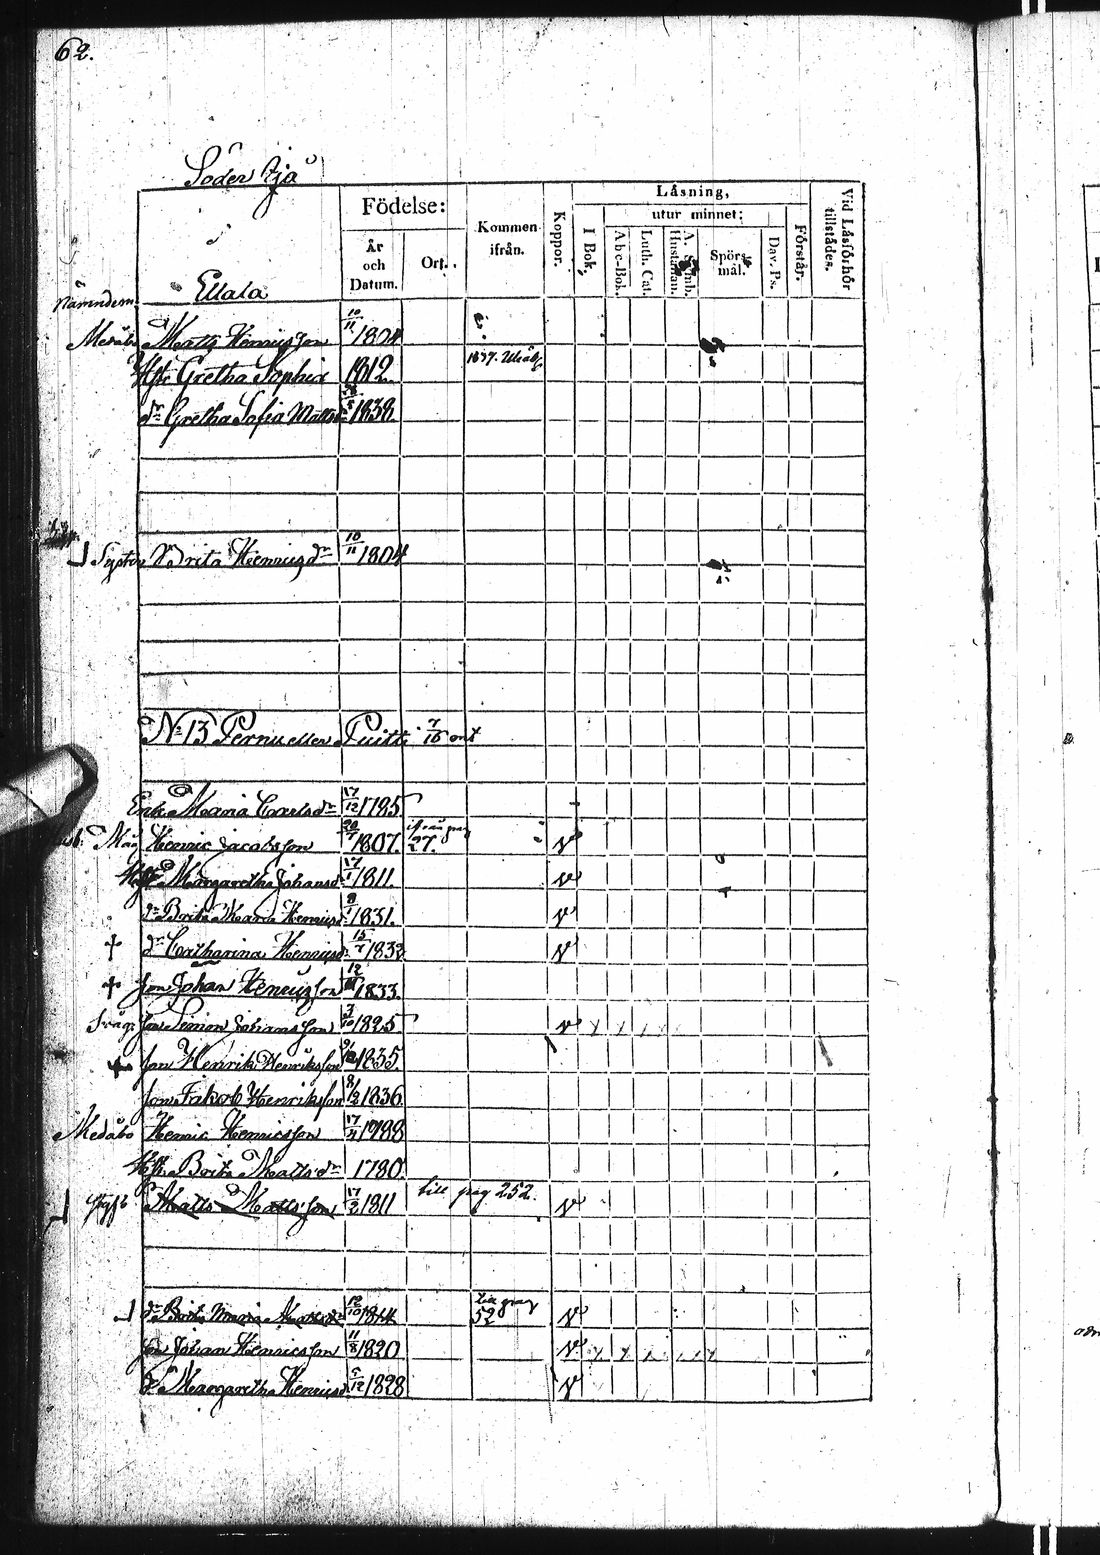 62.
Söder Ejä
Födelse:
År och Datum.
Ort.
Kommen ifrån.
Koppor.
Läsning,
I Bok.
utur minnet:
Abc-Bok.
Luth. Cat.
A. Symb. Hustaflan.
Spörs-mål.
Dav. Ps.
Förstår.
Vid Läsförhör tillstädes.
Ellala
Nämndem.
Medåbo Matts Henricsson 10/11 1804
Hstr Gretha Sophia 1812. 1837.
dr Gretha Sofia Mattsdr 1838.
Syster Brita Henricsdr 10/11 1804
No 13 Pernu eller Puitti
Enk. Maria Carlsdr 17/12 1785
Måg Henric Jacobsson 1807. 27. v
Hstr Margaretha Johansd. 17/1 1811. v
dr Brita Maria Henricsd. 8/1 1831. v
† dr Catharina Henricsd. 15/7 1832 v
† son Johan Henricsson 12 1833.
Svåg: Simon Johansson 3/10 1825 v
† son Henrik Henriksson 1835.
son Jakob Henriksson 8/2 1836
Medåbo Henric Henricsson 17/4 1788
Hstr Brita Mattsdr 1780.
Matts Mattsson 17/2 1811 till pag 252. v
dr Brita Maria Mattsdr 12/10 1814 till pag 52 v
son Johan Henricsson 11/8 1820 v
dr Margaretha Henricsd. 5/12 1828 v